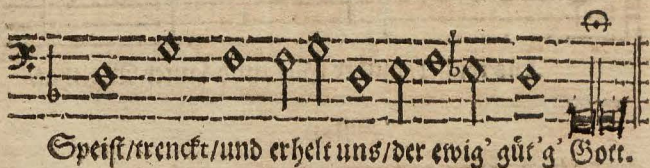 Speist/trenckt/und erhelt uns/der ewig’ güt’g’ Gott.